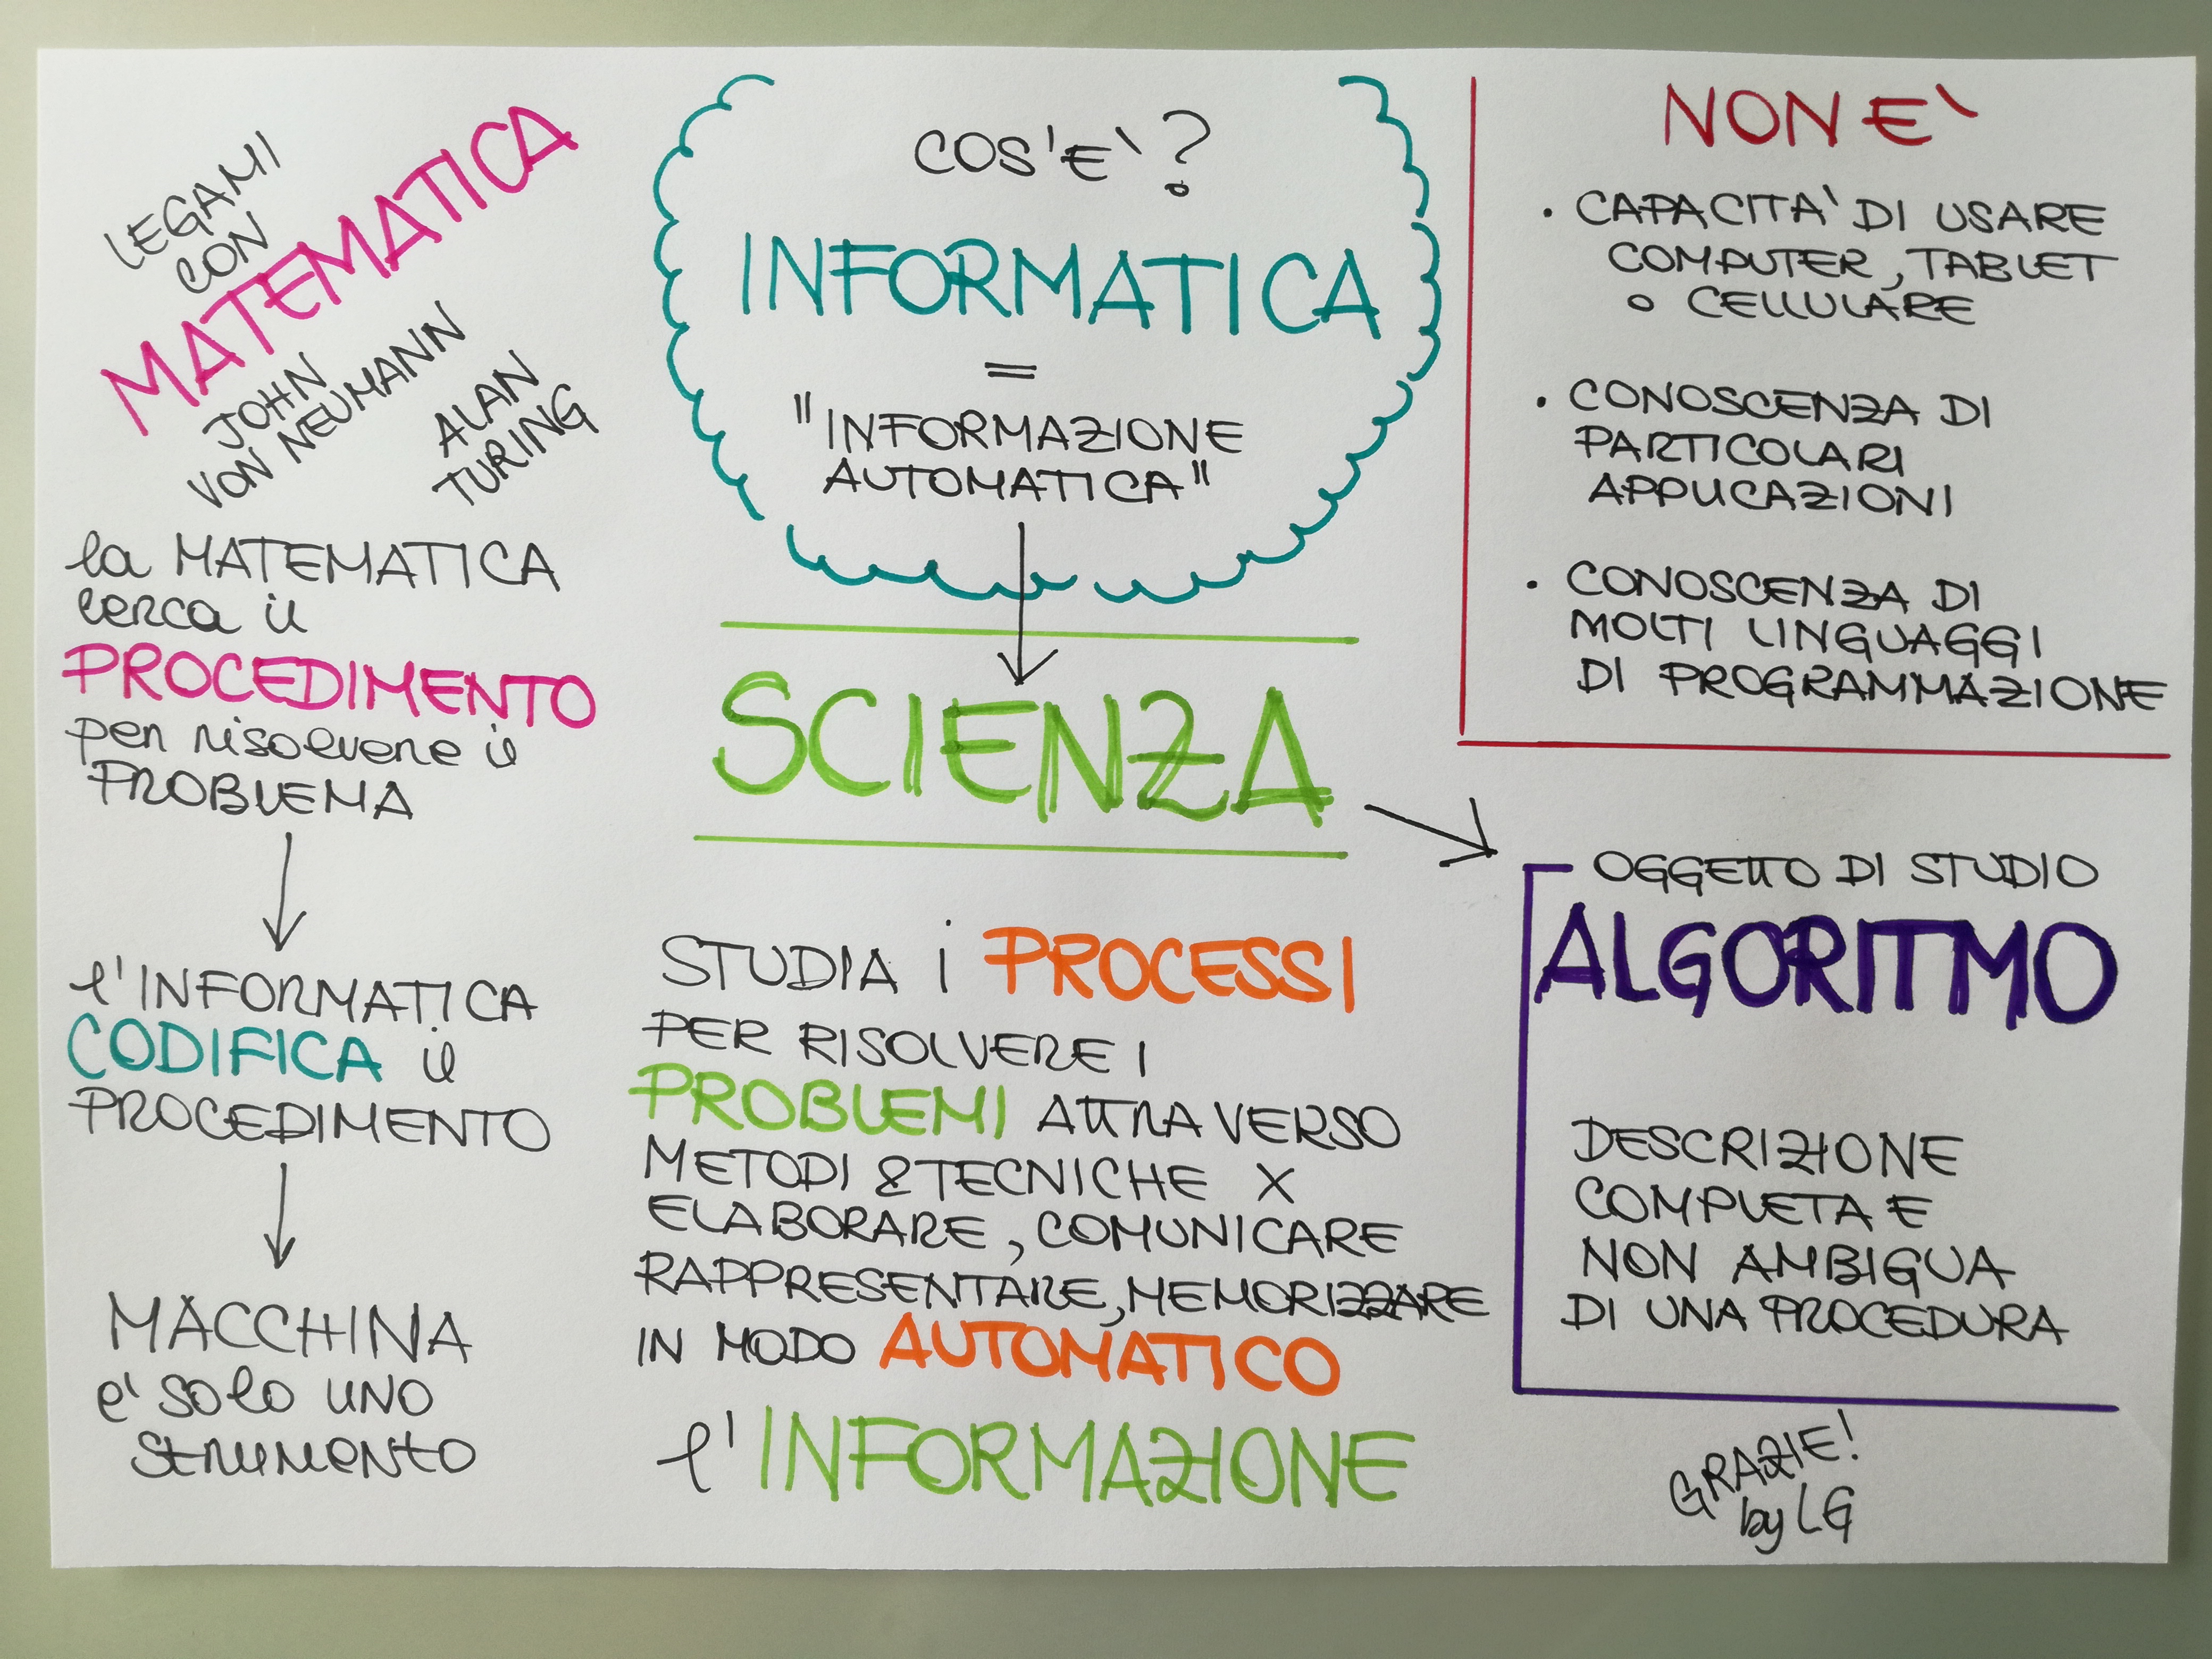 LEGAMI
CON
MATEMATICA
JOHN
VON NEUMANN
ALAN
TURING
la MATEMATICA
cerca il
PROCEDIMENTO
per risolvere il
PROBLEMA
l'INFORMATICA
CODIFICA il
PROCEDIMENTO
MACCHINA
e' solo uno
strumento
COS'E'?
INFORMATICA
=
"INFORMAZIONE
AUTOMATICA"
SCIENZA
STUDIA i PROCESSI
PER RISOLVERE I
PROBLEMI ATTRAVERSO
METODI & TECNICHE X
ELABORARE, COMUNICARE
RAPPRESENTARE, MEMORIZZARE
IN MODO AUTOMATICO
l'INFORMAZIONE
NON E'
• CAPACITA' DI USARE
COMPUTER, TABLET
O CELLULARE
• CONOSCENZA DI
PARTICOLARI
APPLICAZIONI
• CONOSCENZA DI
MOLTI LINGUAGGI
DI PROGRAMMAZIONE
OGGETTO DI STUDIO
ALGORITMO
DESCRIZIONE
COMPLETA E
NON AMBIGUA
DI UNA PROCEDURA
GRAZIE!
by LG